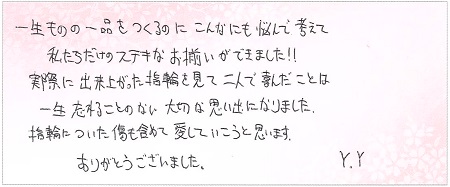 一生ものの一品をつくるのに こんなにも悩んで考えて
私たちだけのステキなお揃いができました!!
実際に出来上がった指輪を見て二人で喜んだことは
一生忘れることのない大切な思い出になりました。
指輪についた傷も含めて愛していこうと思います。
ありがとうございました。 Y.Y